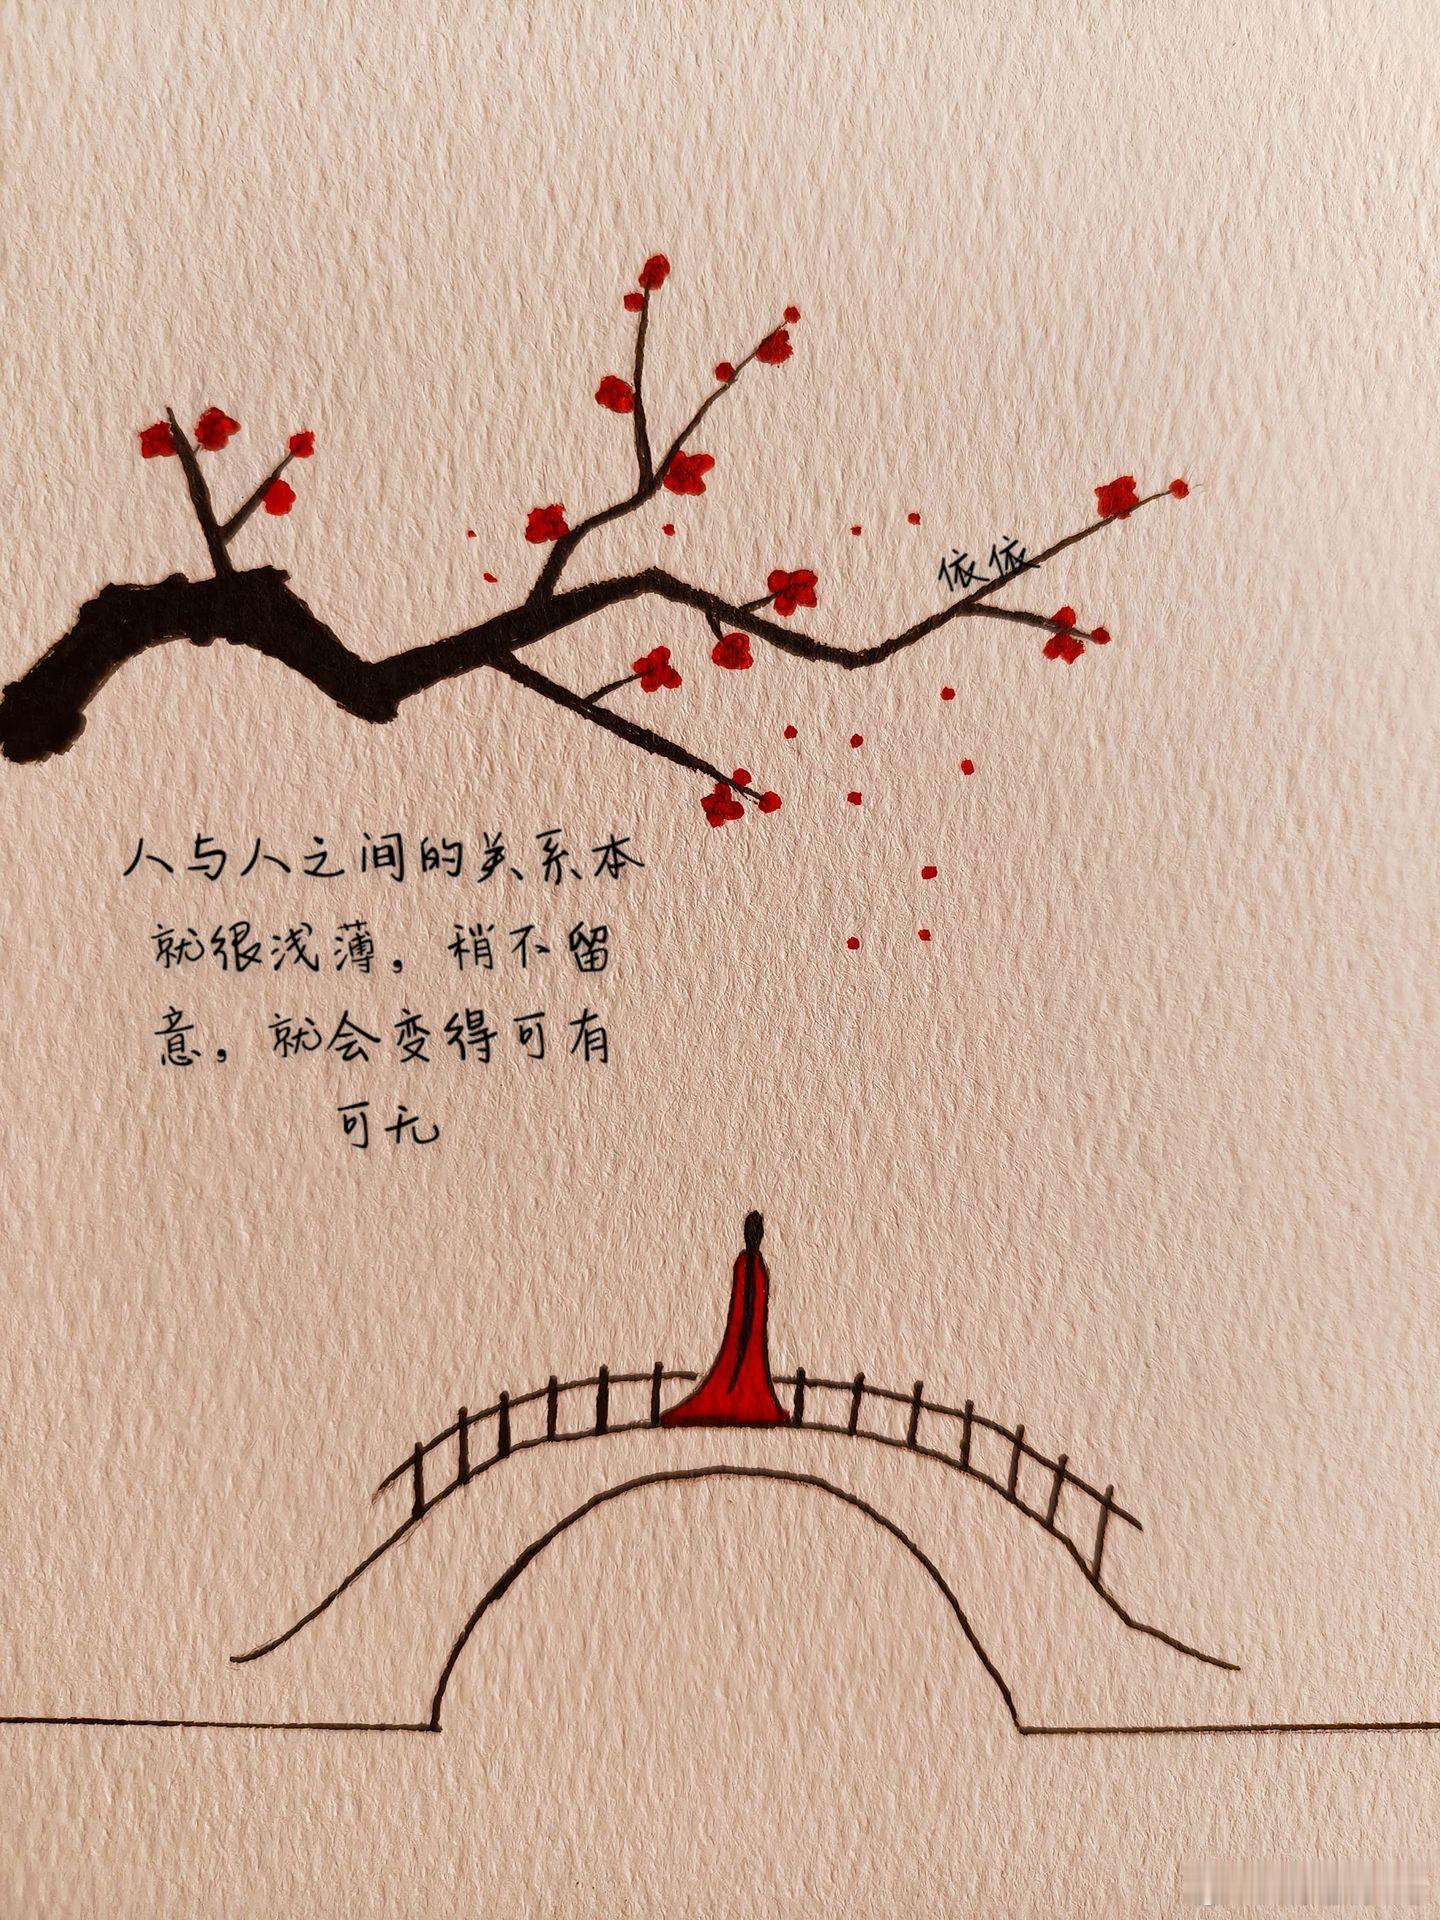 依依
人与人之间的关系本
就很浅薄，稍不留
意，就会变得可有
可无